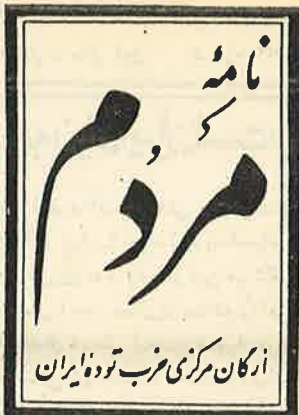 نامهٔ
مردُم
ارگان مرکزی حزب تودهٔ ایران